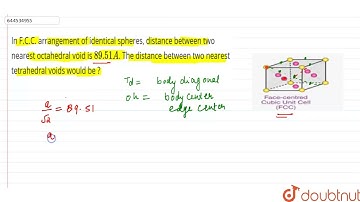 644534955
In F.C.C. arrangement of identical spheres, distance between two
nearest octahedral void is 89.51A. The distance between two nearest
tetrahedral voids would be ?
Td = body diagonal
oh = body center
edge center
a/√2 = 89.51
a
Face-centred
Cubic Unit Cell
(FCC)
doubtnut